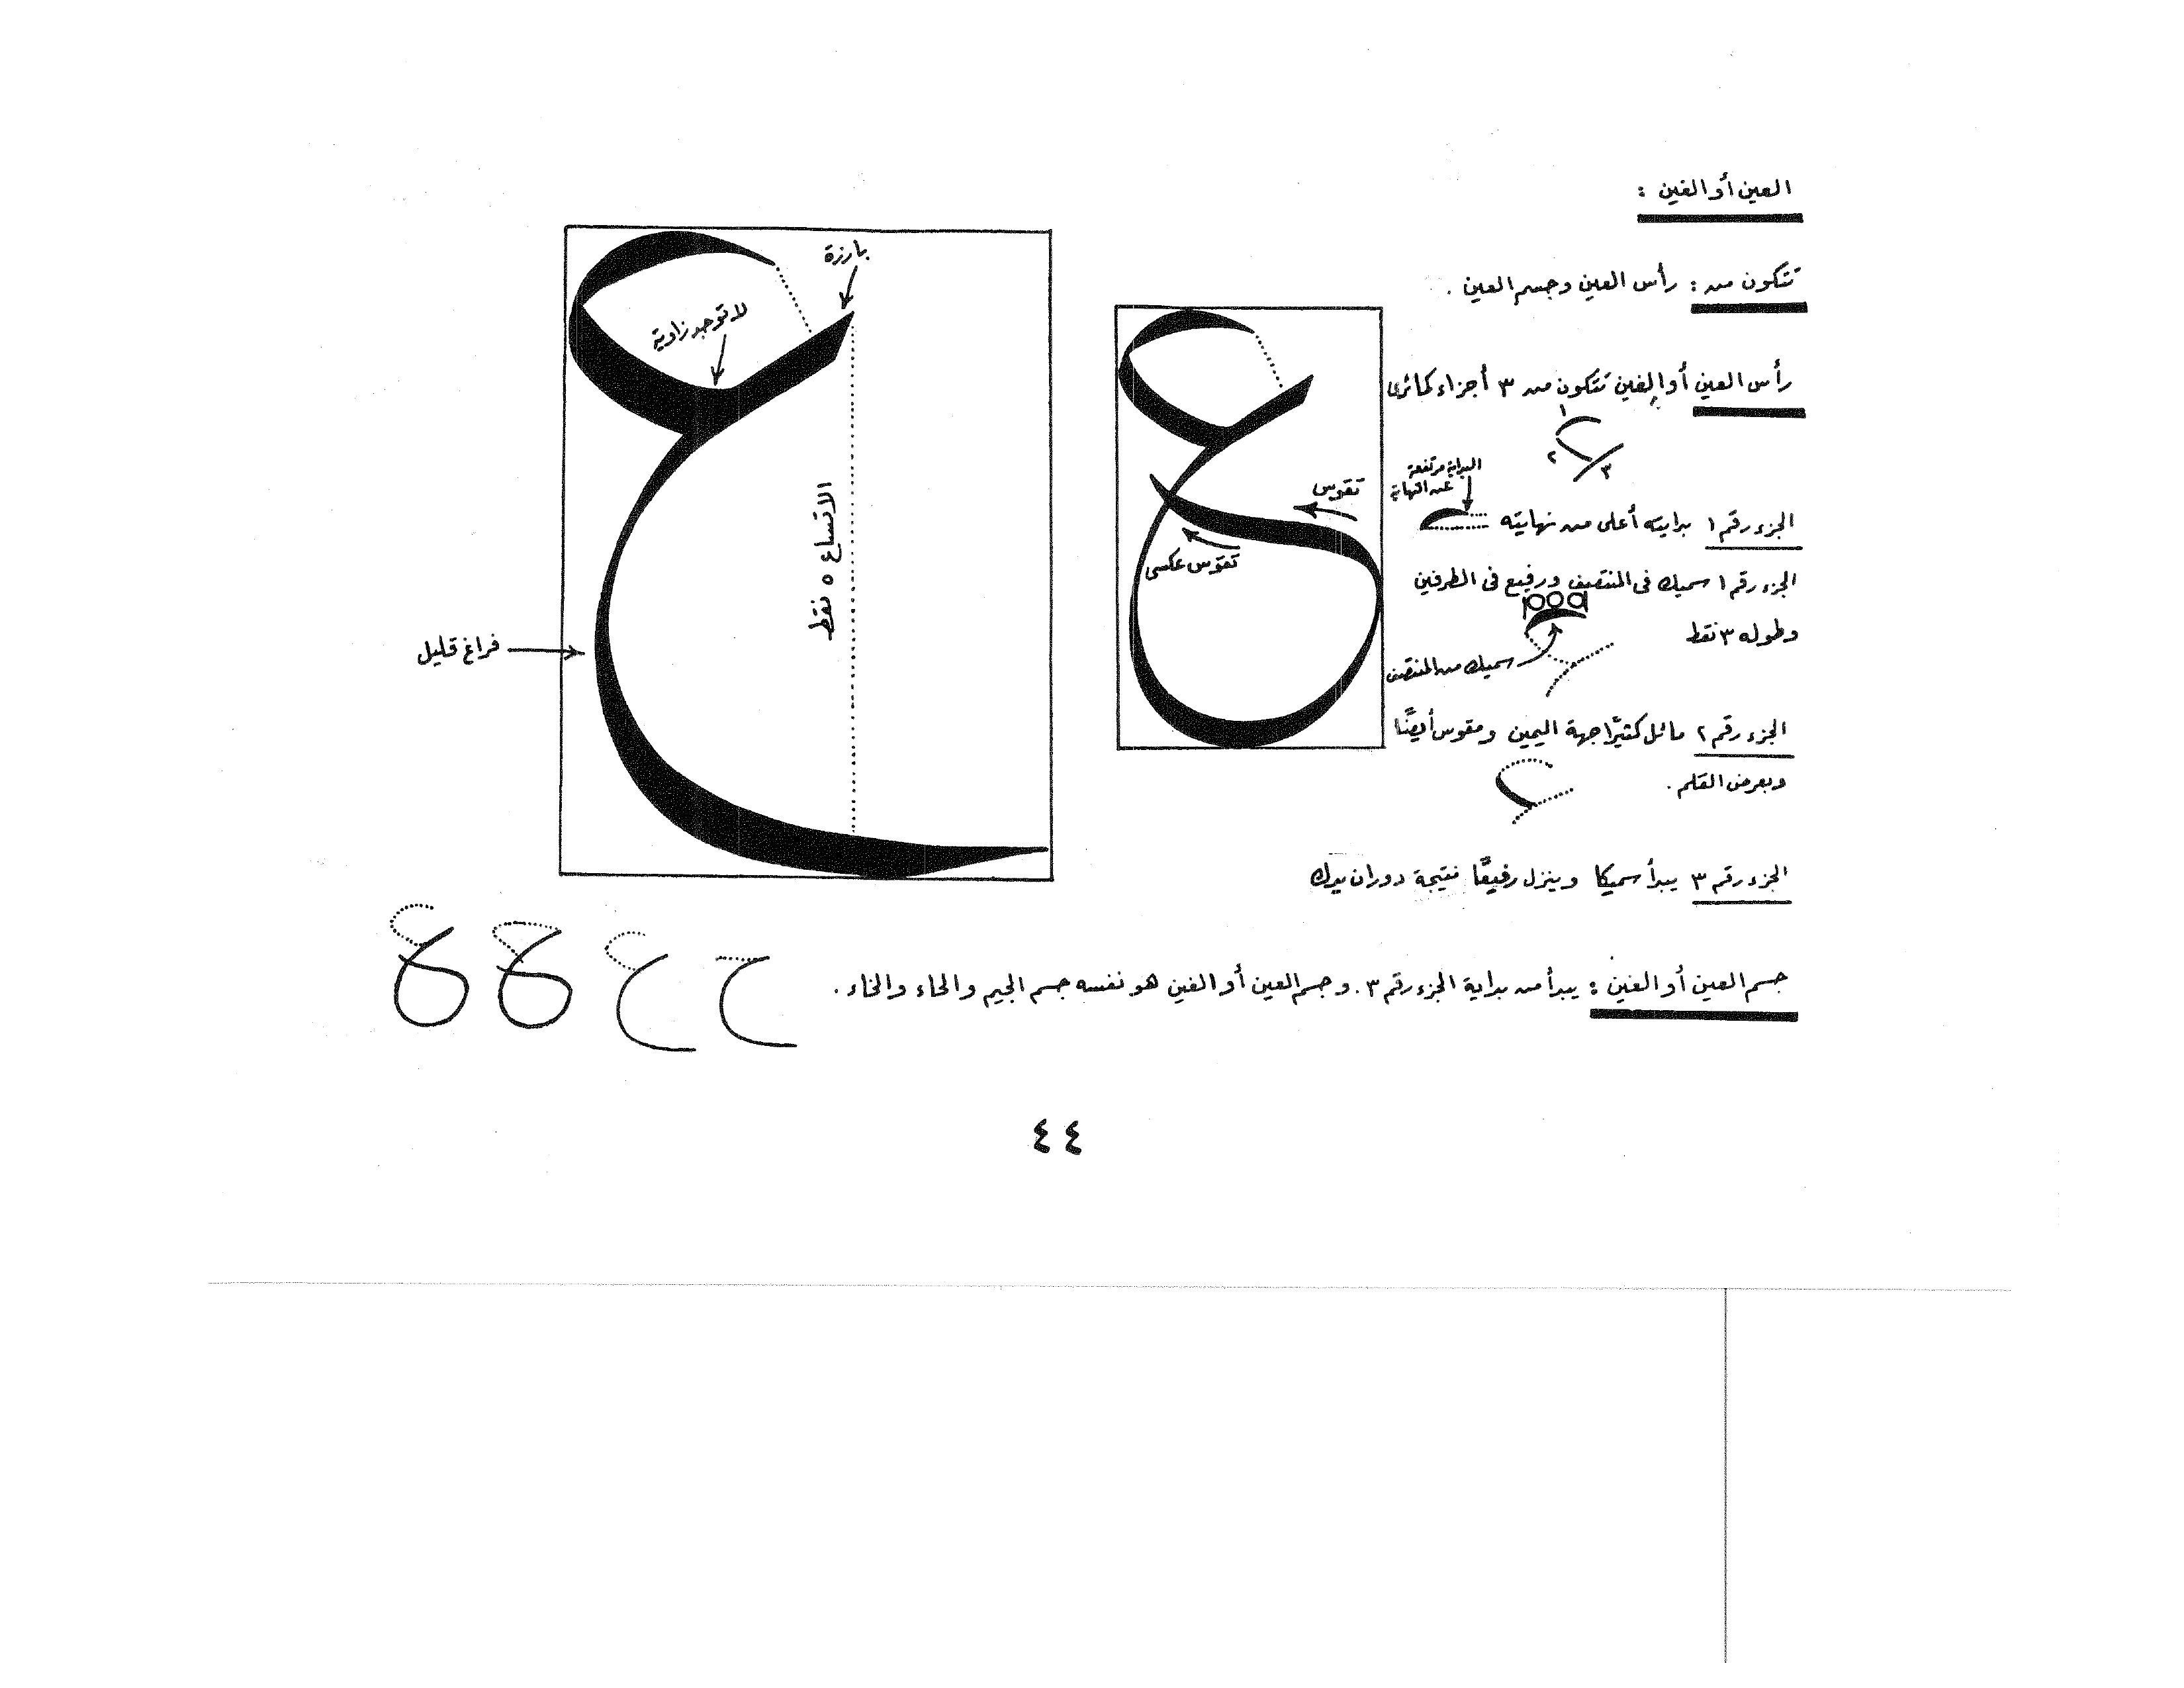 العين أو الغين :
تتكون من : رأس العين وجسم العين .
رأس العين أو الغين تتكون من ٣ أجزاء كما ترى
١
٢
٣
البداية مرتفعة
عن النهاية
الجزء رقم ١ بدايته أعلى من نهايته
الجزء رقم ١ سميك فى المنتصف ورفيع فى الطرفين
وطوله ٣ نقط
سميك من المنتصف
الجزء رقم ٢ مائل كثيرًا جهة اليمين ومقوس أيضًا
وبعرض القلم .
الجزء رقم ٣ يبدأ سميكا وينزل رفيعًا نتيجة دوران يدك
تقوس
تقوس عكسى
بارزة
لا توجد زاوية
الاتساع ٥ نقط
فراغ قليل
جسم العين أو الغين : يبدأ من بداية الجزء رقم ٣ . وجسم العين أو الغين هو نفسه جسم الجيم والحاء والخاء .
٤٤